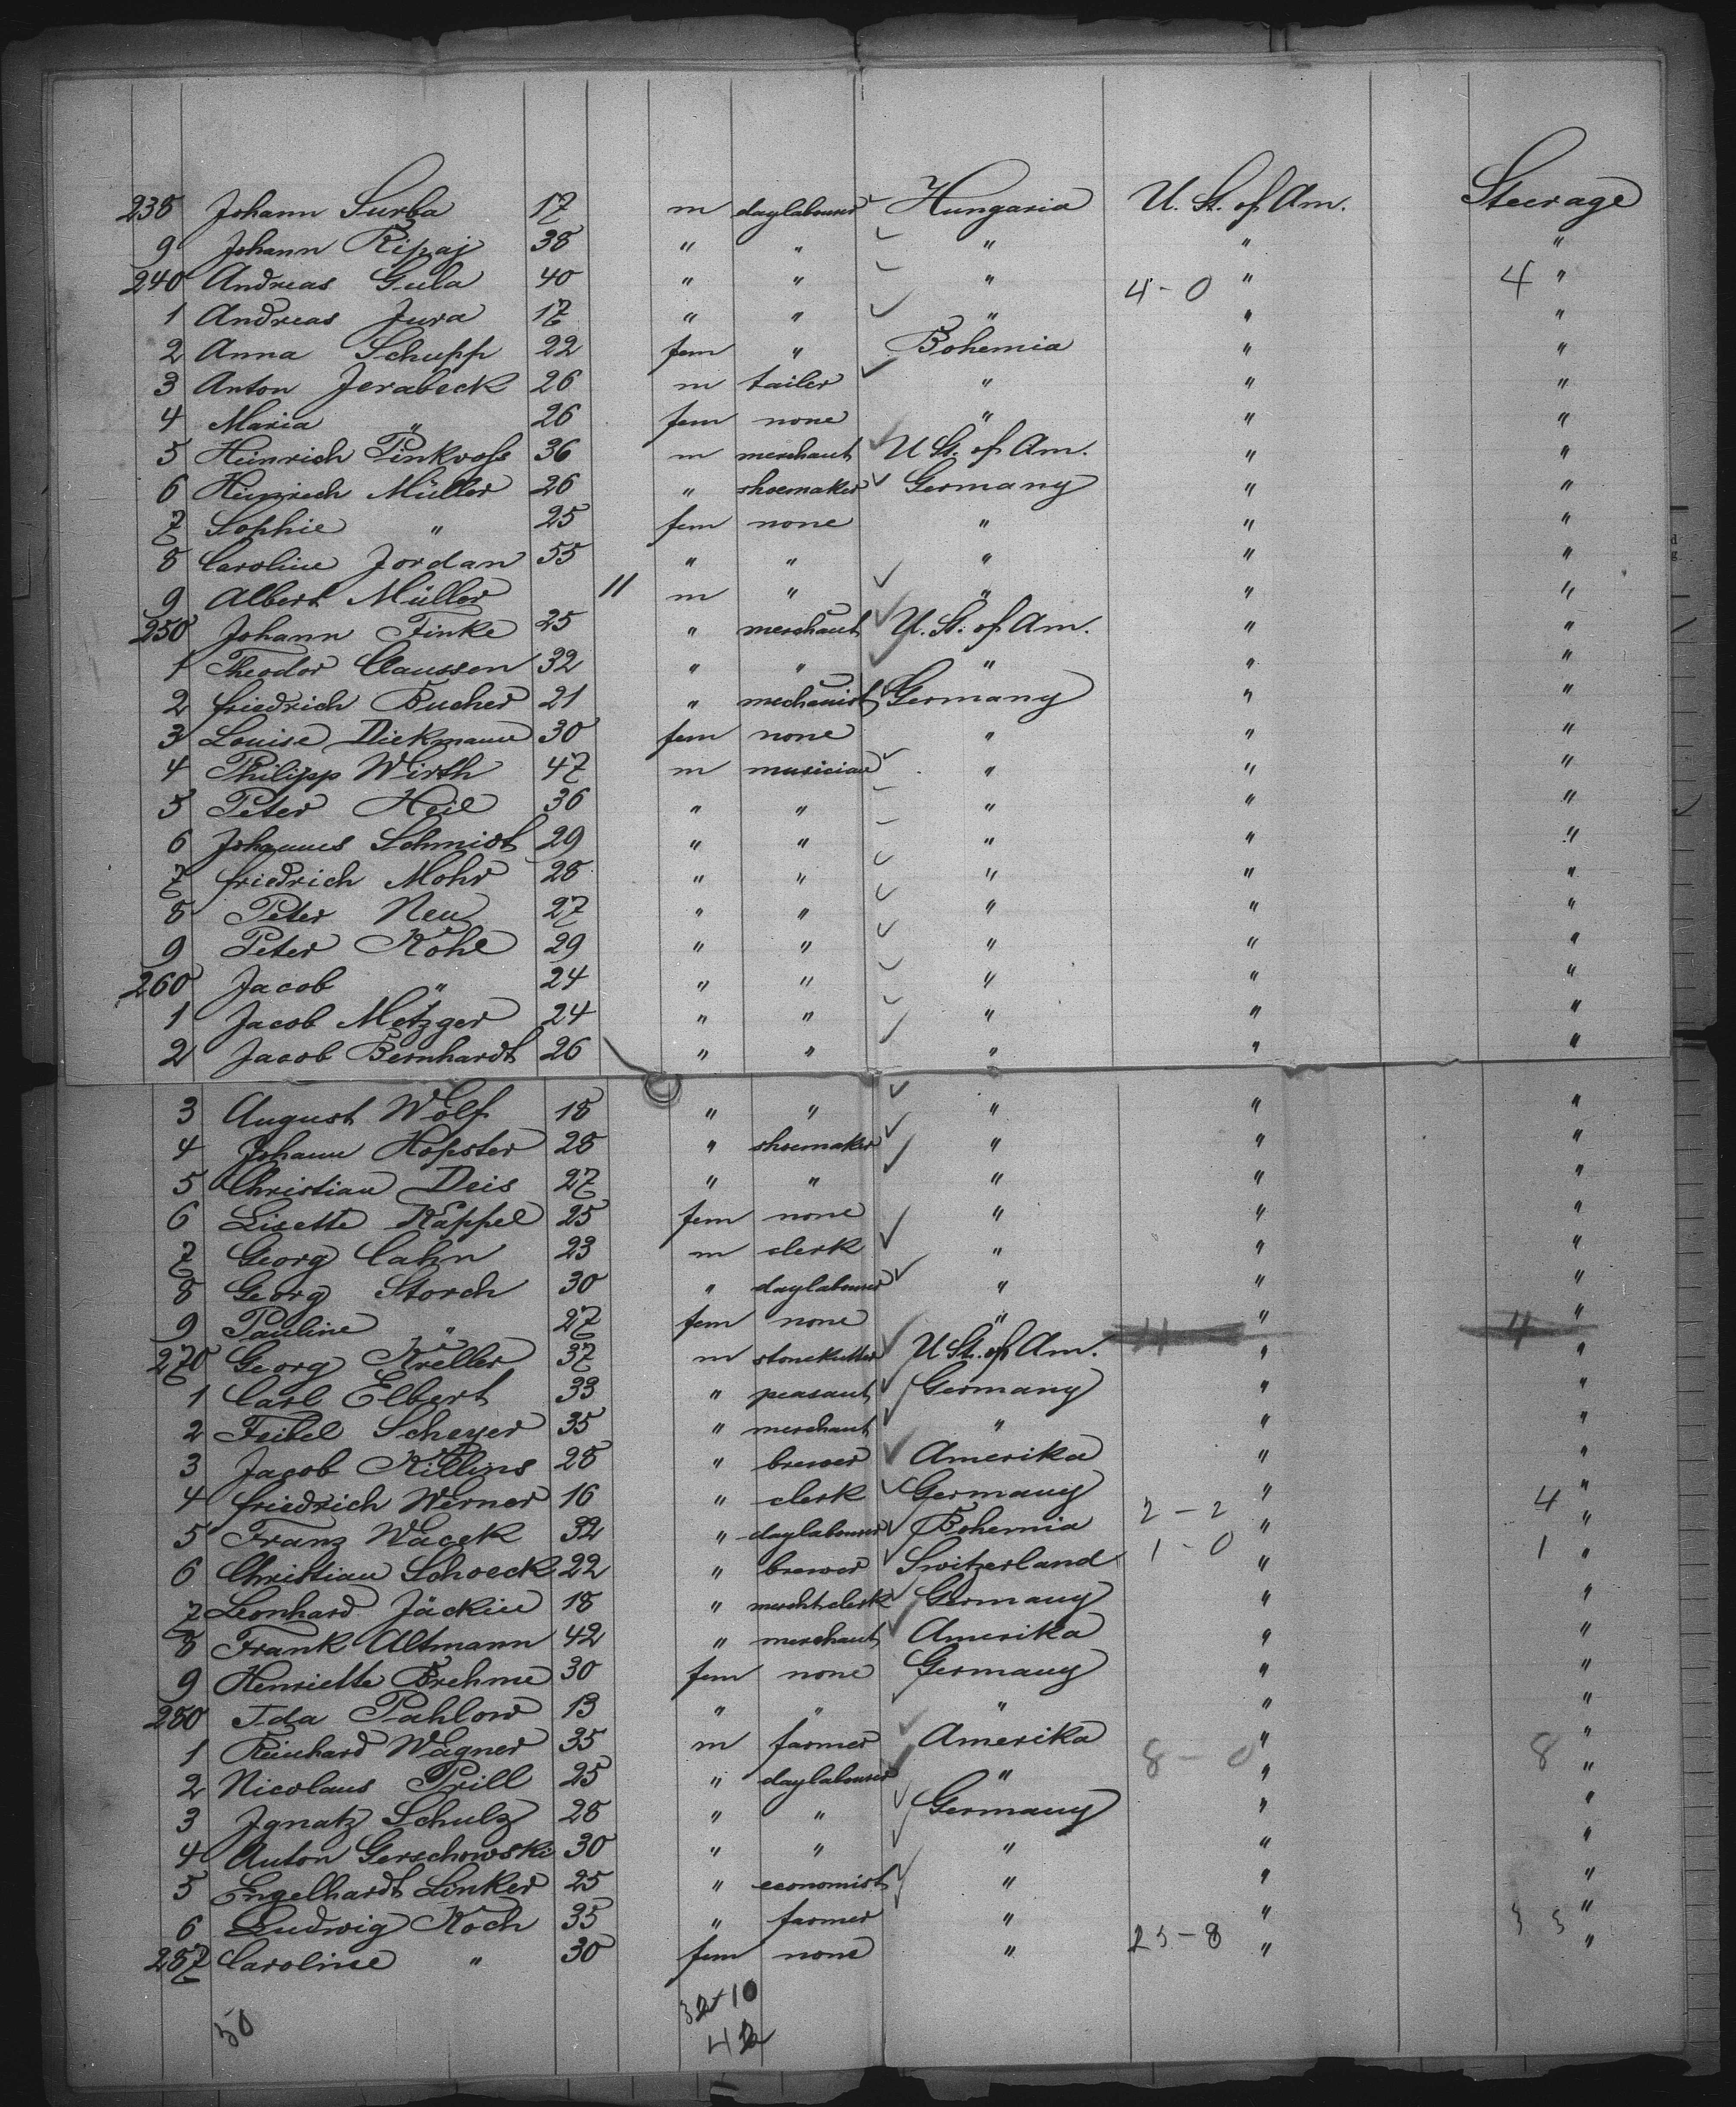 238 Johann Surba 17 m daylabourer Hungaria U. St. of Am. Steerage
9 Johann Ripaj 38 " " " " "
240 Andreas Gula 40 " " " 4-0 " 4 "
1 Andreas Jura 17 " " " " "
2 Anna Schupp 22 fem " Bohemia " "
3 Anton Jerabeck 26 m tailer " " "
4 Maria " 26 fem none " " "
5 Heinrich Pinkvoss 36 m merchant U St. of Am. " "
6 Heinrich Müller 26 " shoemaker Germany " "
7 Sophie " 25 fem none " " "
8 Caroline Jordan 55 " " " " "
9 Albert Müller 11 m " " " "
250 Johann Finke 25 " merchant U. St. of Am. " "
1 Theodor Claussen 32 " " " " "
2 Friedrich Bucher 21 " mechanist Germany " "
3 Louise Diekmann 30 fem none " " "
4 Philipp Wirth 47 m musician " " "
5 Peter Heil 36 " " " " "
6 Johannes Schmidt 29 " " " " "
7 Friedrich Mohr 28 " " " " "
8 Peter Neu 27 " " " " "
9 Peter Kohl 29 " " " " "
260 Jacob " 24 " " " " "
1 Jacob Metzger 24 " " " " "
2 Jacob Bernhardt 26 " " " " "
3 August Wolf 18 " " " " "
4 Johann Hopster 28 " shoemaker " " "
5 Christian Deis 27 " " " " "
6 Lisette Käppel 25 fem none " " "
7 Georg Cahn 23 m clerk " " "
8 Georg Storch 30 " daylabourer " " "
9 Pauline " 27 fem none " " "
270 Georg Kreller 37 m stonekutter U St. of Am. " "
1 Carl Elbert 33 " peasant Germany " "
2 Feibel Scheyer 35 " merchant " " "
3 Jacob Killins 28 " brewer Amerika " "
4 Friedrich Werner 16 " clerk Germany " "
5 Franz Wacek 32 " daylabourer Bohemia 2-2 " 4 "
6 Christian Schoeck 22 " brewer Switzerland 1-0 " 1 "
7 Leonhard Jäckie 18 " mercht.clerk Germany " "
8 Frank Altmann 42 " merchant Amerika " "
9 Henriette Brehme 30 fem none Germany " "
280 Ida Pahlow 13 " " " " "
1 Reinhard Wagner 35 m farmer Amerika " "
2 Nicolaus Prill 25 " daylabourer " 8-0 " 8 "
3 Ignatz Schulz 28 " " Germany " "
4 Anton Gerschowski 30 " " " " "
5 Engelhardt Linker 25 " economist " " "
6 Ludwig Koch 35 " farmer " " "
287 Caroline " 30 fem none " 25-8 " 33 "
50 32-10
42